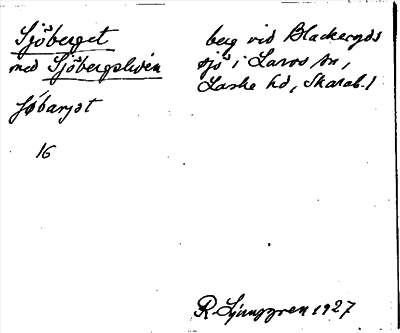 Sjöberget
med Sjöbergsliden
berg vid Blackeryds
sjö i Larvs sn,
Laske hd, Skarab. l
16
R Ljunggren 1927